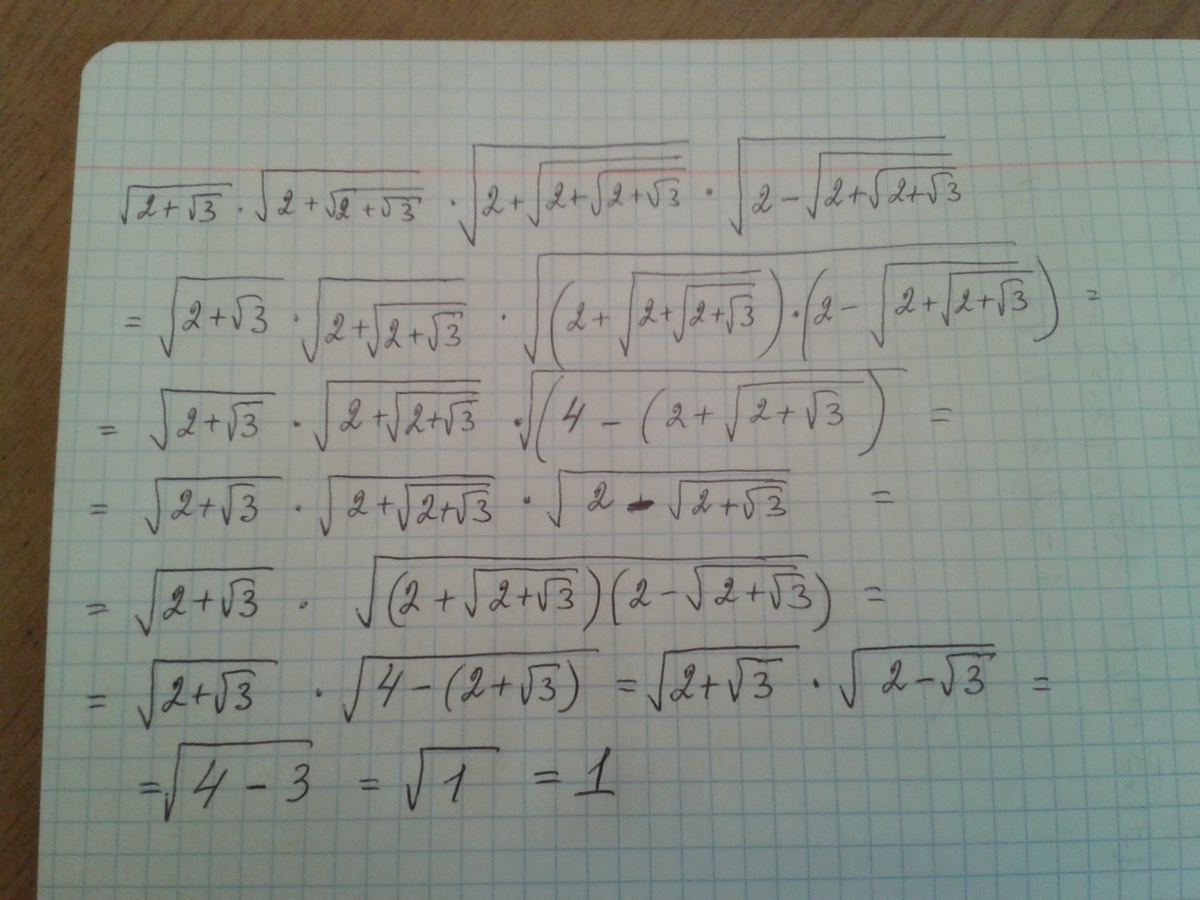 √(2+√3) · √(2+√(2+√3)) · √(2+√(2+√(2+√3))) · √(2-√(2+√(2+√3)))
= √(2+√3) · √(2+√(2+√3)) · √((2+√(2+√(2+√3)))·(2-√(2+√(2+√3)))) =
= √(2+√3) · √(2+√(2+√3)) · √((4-(2+√(2+√3))) =
= √(2+√3) · √(2+√(2+√3)) · √(2-√(2+√3)) =
= √(2+√3) · √((2+√(2+√3))(2-√(2+√3))) =
= √(2+√3) · √(4-(2+√3)) = √(2+√3) · √(2-√3) =
= √(4-3) = √1 = 1